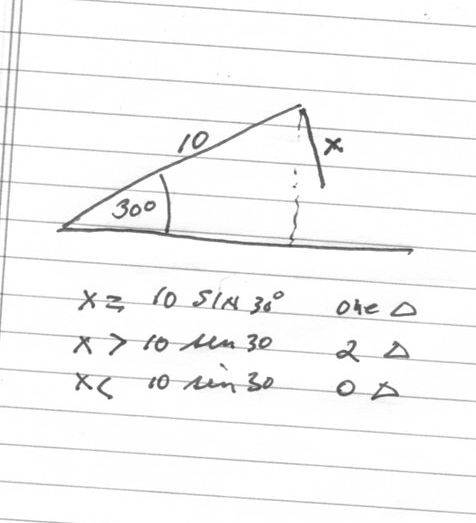 10
x
30°
x = 10 SIN 30° one △
x > 10 sin 30 2 △
x < 10 sin 30 0 △